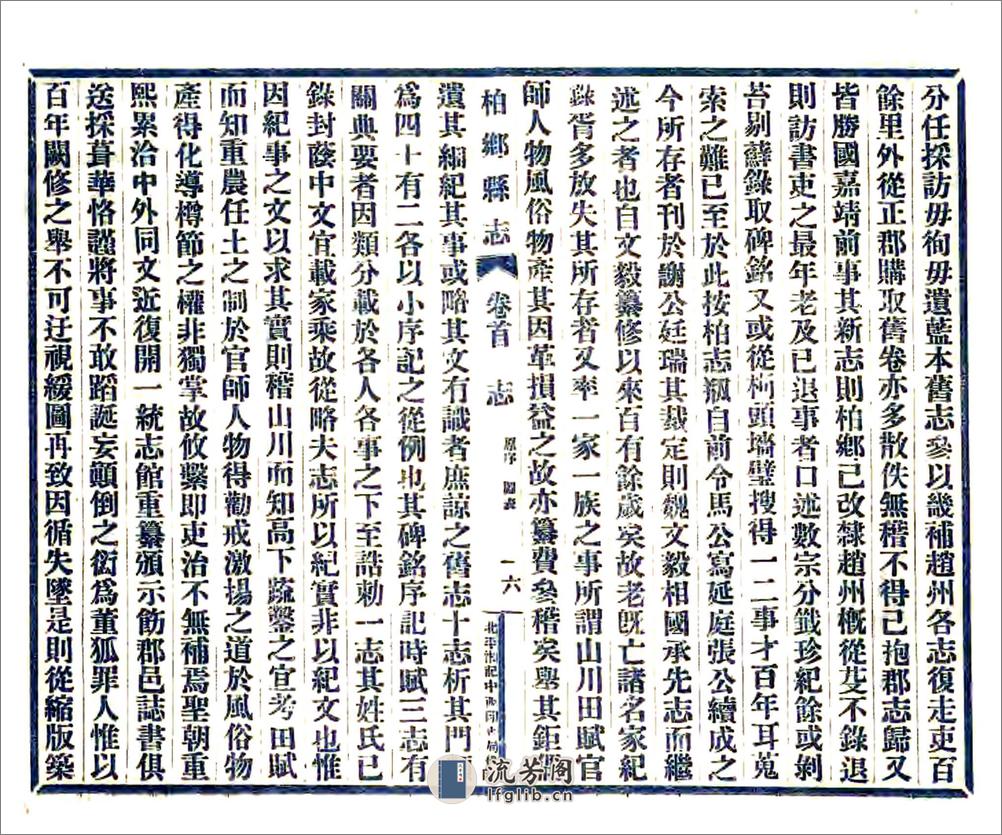 分任採訪毋徇毋遺藍本舊志參以畿補趙州各志復走吏百
餘里外從正郡購取舊卷亦多散佚無稽不得已抱郡志歸又
皆勝國嘉靖前事其新志則柏鄉已改隸趙州概從芟不錄退
則訪書吏之最年老及已退事者口述數宗分籤珍紀餘或剝
苔剔蘚錄取碑銘又或從柯頭墻壁搜得一二事才百年耳蒐
索之難已至於此按柏志剏自前令馬公寫延庭張公續成之
今所存者刊於謝公廷瑞其裁定則魏文毅相國承先志而繼
述之者也自文毅纂修以來百有餘歲矣故老既亡諸名家紀
錄胥多放失其所存者又率一家一族之事所謂山川田賦官
師人物風俗物產其因革損益之故亦纂費參稽矣舉其鉅
柏鄉縣志 卷首 志 原序 圖表 一六
遺其細紀其事或略其文有識者庶諒之舊志十志析其門
為四十有二各以小序記之從例也其碑銘序記時賦三志有
關典要者因類分載於各人各事之下至誥勅一志其姓氏已
錄封蔭中文宜載家乘故從略夫志所以紀實非以紀文也惟
因紀事之文以求其實則稽山川而知高下疏鑿之宜考田賦
而知重農任土之制於官師人物得勸戒激揚之道於風俗物
產得化導樽節之權非獨掌故攸繫即吏治不無補焉聖朝重
熙累洽中外同文近復開一統志館重纂頒示飭郡邑誌書俱
送採葺華恪謹將事不敢蹈誕妄顛倒之愆為董狐罪人惟以
百年闕修之舉不可迂視緩圖再致因循失墜是則從縮版築
流芳閣
lfglib.cn